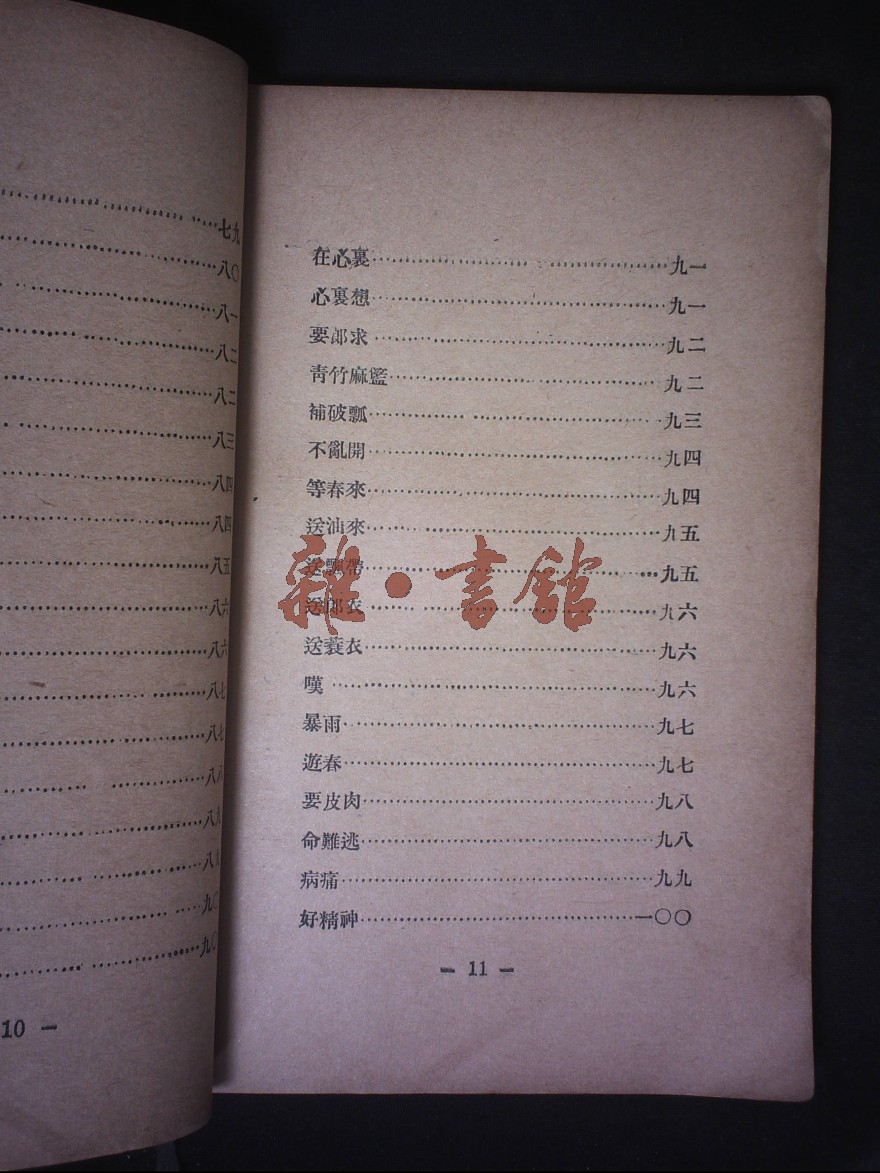 七九
八〇
八一
八二
八二
八三
八四
八四
八五
八六
八六
八七
八七
八八
八九
八九
九〇
九〇
10 —
在必裏……九一
必裏想……九一
要郎求……九二
靑竹麻籃……九二
補破瓢……九三
不亂開……九四
等春來……九四
送油來……九五
送飄帶……九五
送郎衣……九六
送蓑衣……九六
嘆……九六
暴雨……九七
遊春……九七
要皮肉……九八
命難逃……九八
病痛……九九
好精神……一〇〇
— 11 —
雜·書館